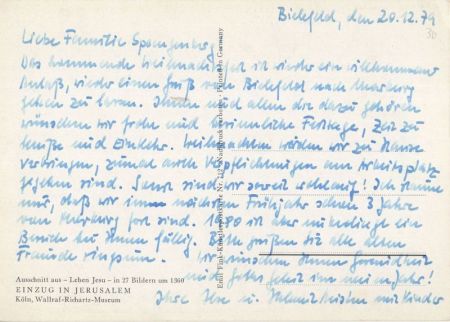 Bielefeld, den 20.12.79
Liebe Familie Spangenberg
Das kommende Weihnachtsfest ist wieder ein willkommener
Anlaß, wieder einen Gruß von Bielefeld nach Marburg
gehen zu lassen. Ihnen und allen die dazu gehören
wünschen wir frohe und besinnliche Festtage, Zeit zu
Muße und Einkehr. Weihnachten werden wir zu Hause
verbringen, zumal auch Verpflichtungen am Arbeitsplatz
gegeben sind. Sonst sind wir soweit wohlauf! Ich staune
nur, daß wir im nächsten Frühjahr schon 3 Jahre
von Marburg fort sind. 1980 ist aber unbedingt ein
Besuch bei Ihnen fällig. Bitte grüßen Sie alle alten
Freunde ringsum. Wir wünschen Ihnen Gesundheit
und Gottes Geleit im neuen Jahr!
Ihre und Kinder
Ausschnitt aus – Leben Jesu – in 27 Bildern um 1360
EINZUG IN JERUSALEM
Köln, Wallraf-Richartz-Museum
Printed in Germany